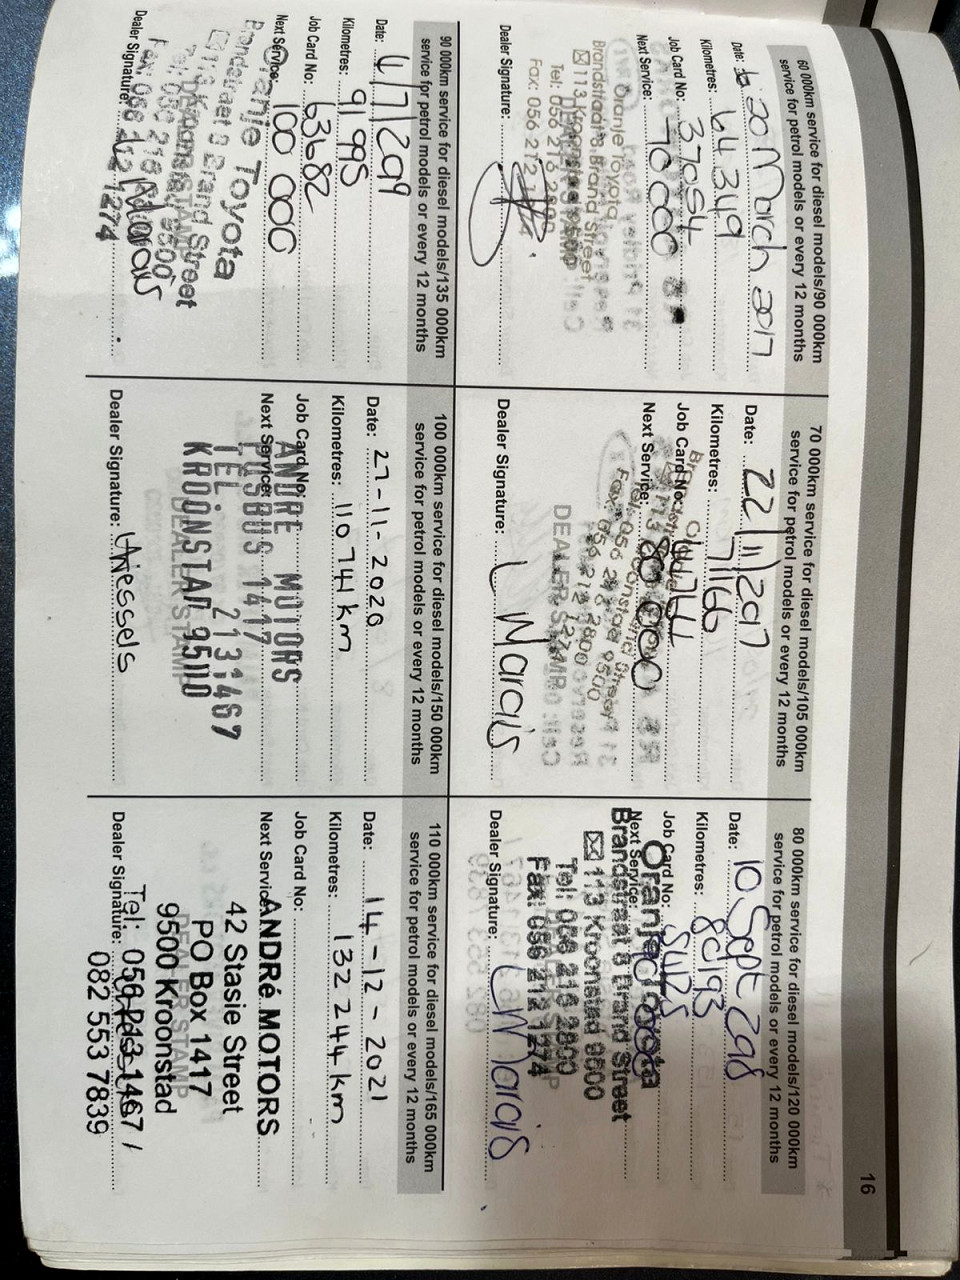 16
60 000km service for diesel models/90 000km
service for petrol models or every 12 months
Date: 20 March 2017
Kilometres: 64 349
Job Card No: 37054
Next Service: 70 000
Oranje Toyota
Brandstraat 8 Brand Street
113 Kroonstad 9500
Tel: 056 216 2800
Fax: 056 212 1274
Dealer Signature:
70 000km service for diesel models/105 000km
service for petrol models or every 12 months
Date: 22/11/2017
Kilometres: 71166
Job Card No: 44744
Next Service: 80 000
DEALER STAMP
Dealer Signature: L Marais
80 000km service for diesel models/120 000km
service for petrol models or every 12 months
Date: 10 Sept 2018
Kilometres: 80193
Job Card No:
Next Service:
Oranje Toyota
Brandstraat 8 Brand Street
113 Kroonstad 9500
Tel: 056 216 2800
Fax: 056 212 1274
Dealer Signature: L Marais
90 000km service for diesel models/135 000km
service for petrol models or every 12 months
Date: 4/7/2019
Kilometres: 91 995
Job Card No: 63682
Next Service: 100 000
Oranje Toyota
Brandstraat 8 Brand Street
113 Kroonstad 9500
Tel: 056 216 2800
Fax: 056 212 1274
Dealer Signature: L Marais
100 000km service for diesel models/150 000km
service for petrol models or every 12 months
Date: 27-11-2020
Kilometres: 110 741 km
Job Card No:
Next Service:
ANDRE MOTORS
POSBUS 1417
TEL 2131467
KROONSTAD 9500
DEALER STAMP
Dealer Signature: Wessels
110 000km service for diesel models/165 000km
service for petrol models or every 12 months
Date: 14-12-2021
Kilometres: 132 244 km
Job Card No:
Next Service:
ANDRÉ MOTORS
42 Stasie Street
PO Box 1417
9500 Kroonstad
DEALER STAMP
Tel: 056 213 1467 /
082 553 7839
Dealer Signature: